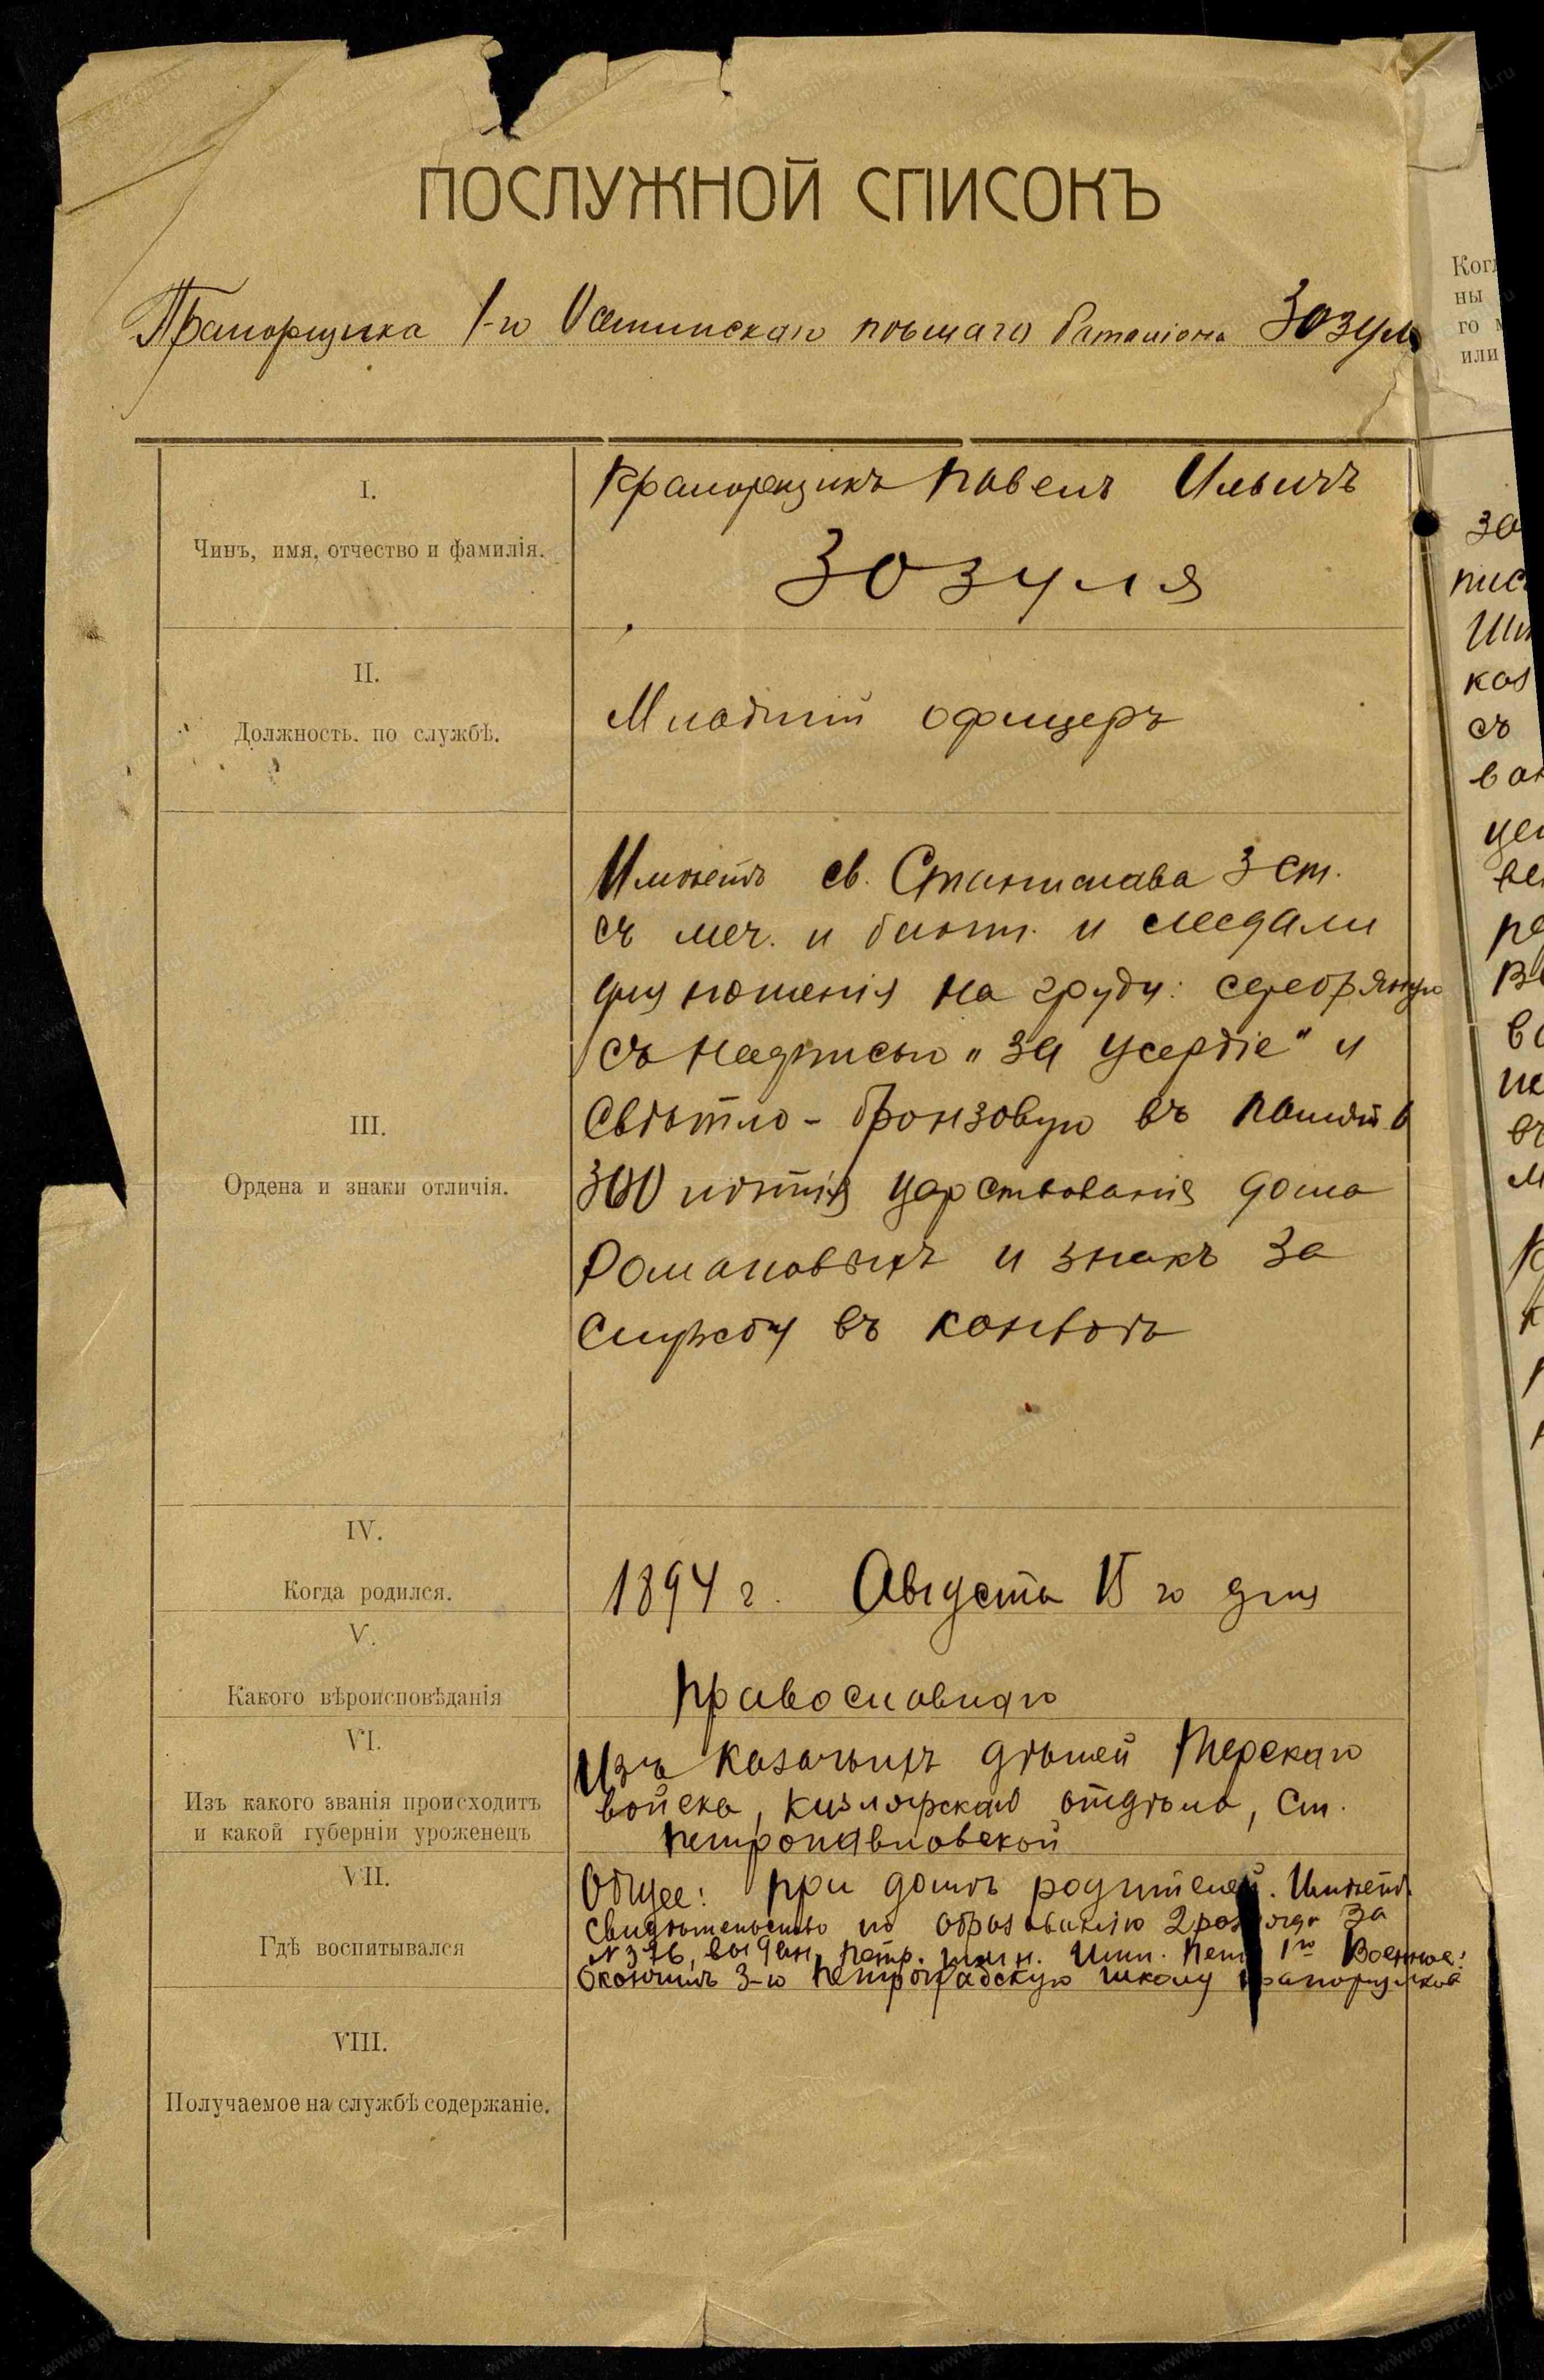 ПОСЛУЖНОЙ СПИСОКЪ
Прапорщика 1-го Осетинскаго пѣшаго баталіона Зозуля
I.
Чинъ, имя, отчество и фамилія.
Прапорщикъ Павелъ Ильичъ
Зозуля
II.
Должность по службѣ.
Младшій офицеръ
III.
Ордена и знаки отличія.
Имѣетъ св. Станислава 3 ст.
съ меч. и бант. и медали
для ношенія на груди: серебряную
съ надписью „за усердіе" и
свѣтло-бронзовую въ память
300 лѣтія царствованія дома
Романовыхъ и знакъ за
службу въ конвоѣ
IV.
Когда родился.
1894 г. Августа 15 го дня
V.
Какого вѣроисповѣданія
Православнаго
VI.
Изъ какого званія происходитъ
и какой губерніи уроженецъ
Изъ казачьихъ дѣтей Терскаго
войска, Кизлярскаго отдѣла, ст.
Петропавловской
VII.
Гдѣ воспитывался
Общее: при домѣ родителей. Имѣетъ
свидѣтельство по образованію 2 разряда за
№ 376, выдан. Петр. Военное:
Окончилъ 3-ю Петроградскую школу прапорщиковъ
VIII.
Получаемое на службѣ содержаніе.
Ког
ны
го
или
за
пис
каз
съ